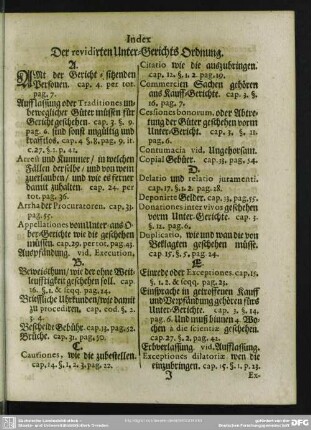 Index
Der revidirten Unter-Gerichts Ordnung.
A.
AMt der Gericht-sitzenden
Personen. cap. 4. per tot.
pag. 7.
Aufflassung oder Traditiones un-
beweglicher Güter müssen für
Gericht geschehen. cap. 3. §. 9.
pag. 6. sind sonst ungültig und
krafftlos, cap. 4. §. 8. pag. 9. it.
c. 27. §. 1. p. 41.
Arrest und Kummer/ in welchen
Fällen derselbe/ und von wem
zuerlauben/ und wie es ferner
damit zuhalten. cap. 24. per
tot. pag. 36.
Arrha der Procuratoren. cap. 31.
pag. 55.
Appellationes vom Unter- ans O-
ber-Gerichte wie die geschehen
müssen. cap. 29. per tot. pag. 43.
Auspfändung. vid. Execution.
B.
Beweisthum/ wie der ohne Weit-
leufftigkeit geschehen soll. cap.
16. §. 1. & seqq. pag. 14.
Brieffliche Uhrkunden/ wie damit
zu procediren. cap. eod. §. 2.
3. 4.
Bescheide Gebühr. cap. 33. pag. 52.
Brüche. cap. 31. pag. 50.
C.
Cautiones, wie die zubestellen.
cap. 14. §. 1, 2, 3. pag. 12.
Citatio wie die auszubringen.
cap. 12. §. 1. 2. pag. 10.
Commercien Sachen gehören
ans Kauff-Gerichte. cap. 3. §.
16. pag. 7.
Cessiones bonorum. oder Abtre-
tung der Güter geschehen vorm
Unter-Gericht. cap. 3. §. 11.
pag. 6.
Contumacia vid. Ungehorsam.
Copial Gebühr. cap. 33. pag. 54.
D.
Delatio und relatio juramenti.
cap. 17. §. 1. 2. pag. 18.
Deponirte Gelder. cap. 33, pag. 55.
Donationes inter vivos geschehen
vorm Unter-Gerichte. cap. 3.
§. 12. pag. 6.
Duplicatio, wie und wan die von
Beklagten geschehen müsse.
cap. 15. §. 5. pag. 24.
E.
Einrede oder Exceptiones. cap. 15.
§. 1. 2. & seqq. pag. 23.
Einsprache in getroffenen Kauff
und Verpfändung gehören fürs
Unter-Gerichte. cap. 3. §. 14.
pag. 6. Und muß binnen 4. Wo-
chen à die scientiæ geschehen.
cap. 27. §. 2. pag. 41.
Erbverlassung. vid. Aufflassung.
Exceptiones dilatoriæ wen die
einzubringen. cap. 15. §. 1. p. 13.
J
Ex-